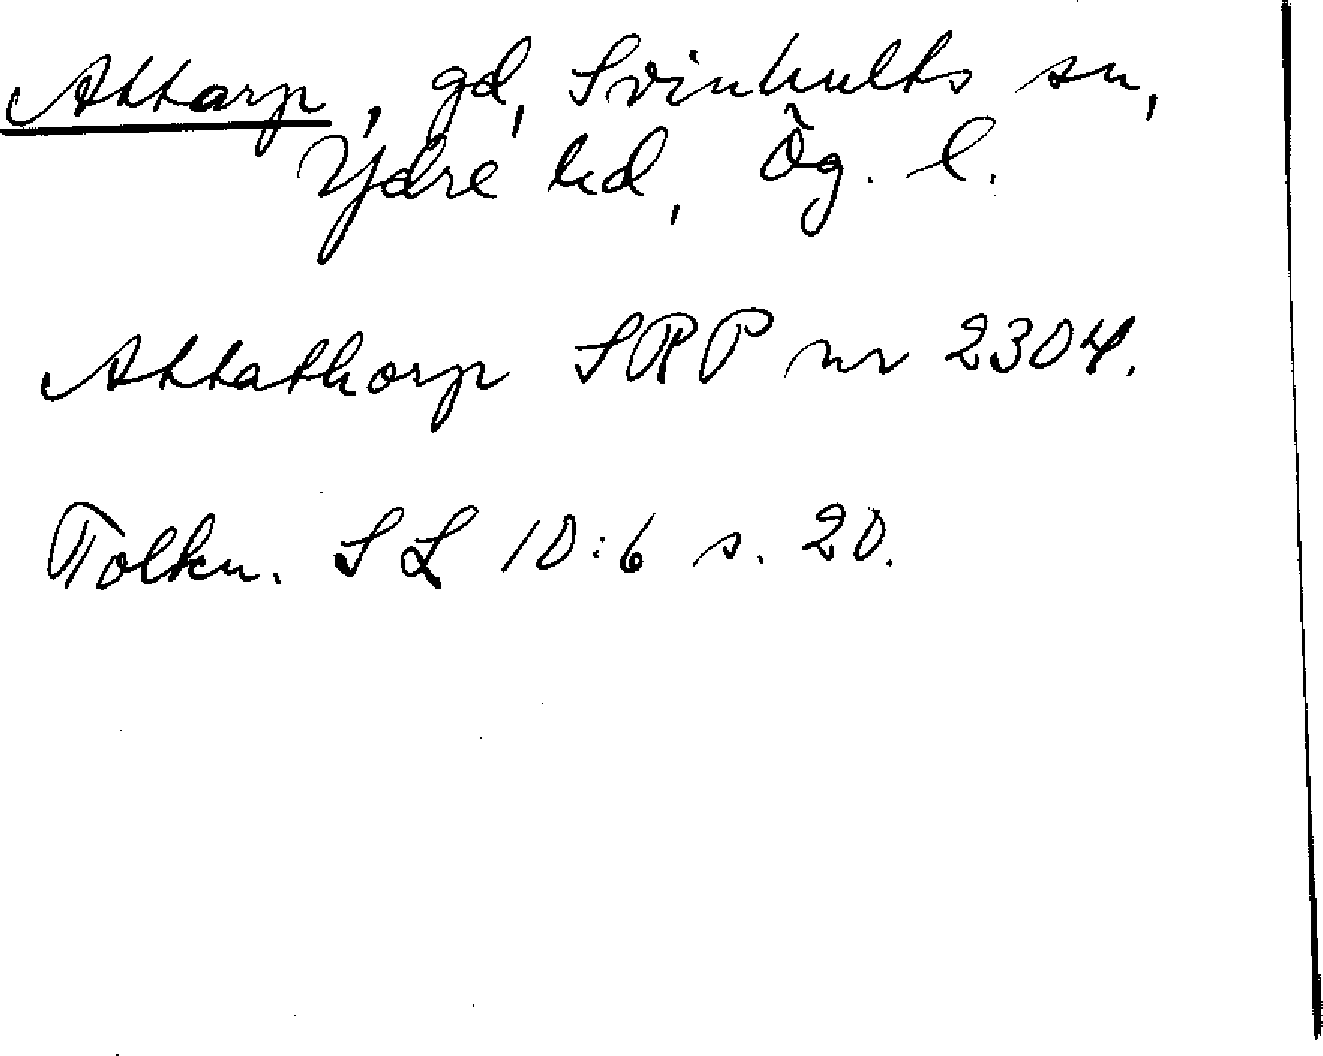 Attarp, gd, Svinhults sn,
Ydre hd, Ög. l.
Attathorp SRP nr 2304.
Tolkn. SL 10:6 s. 20.